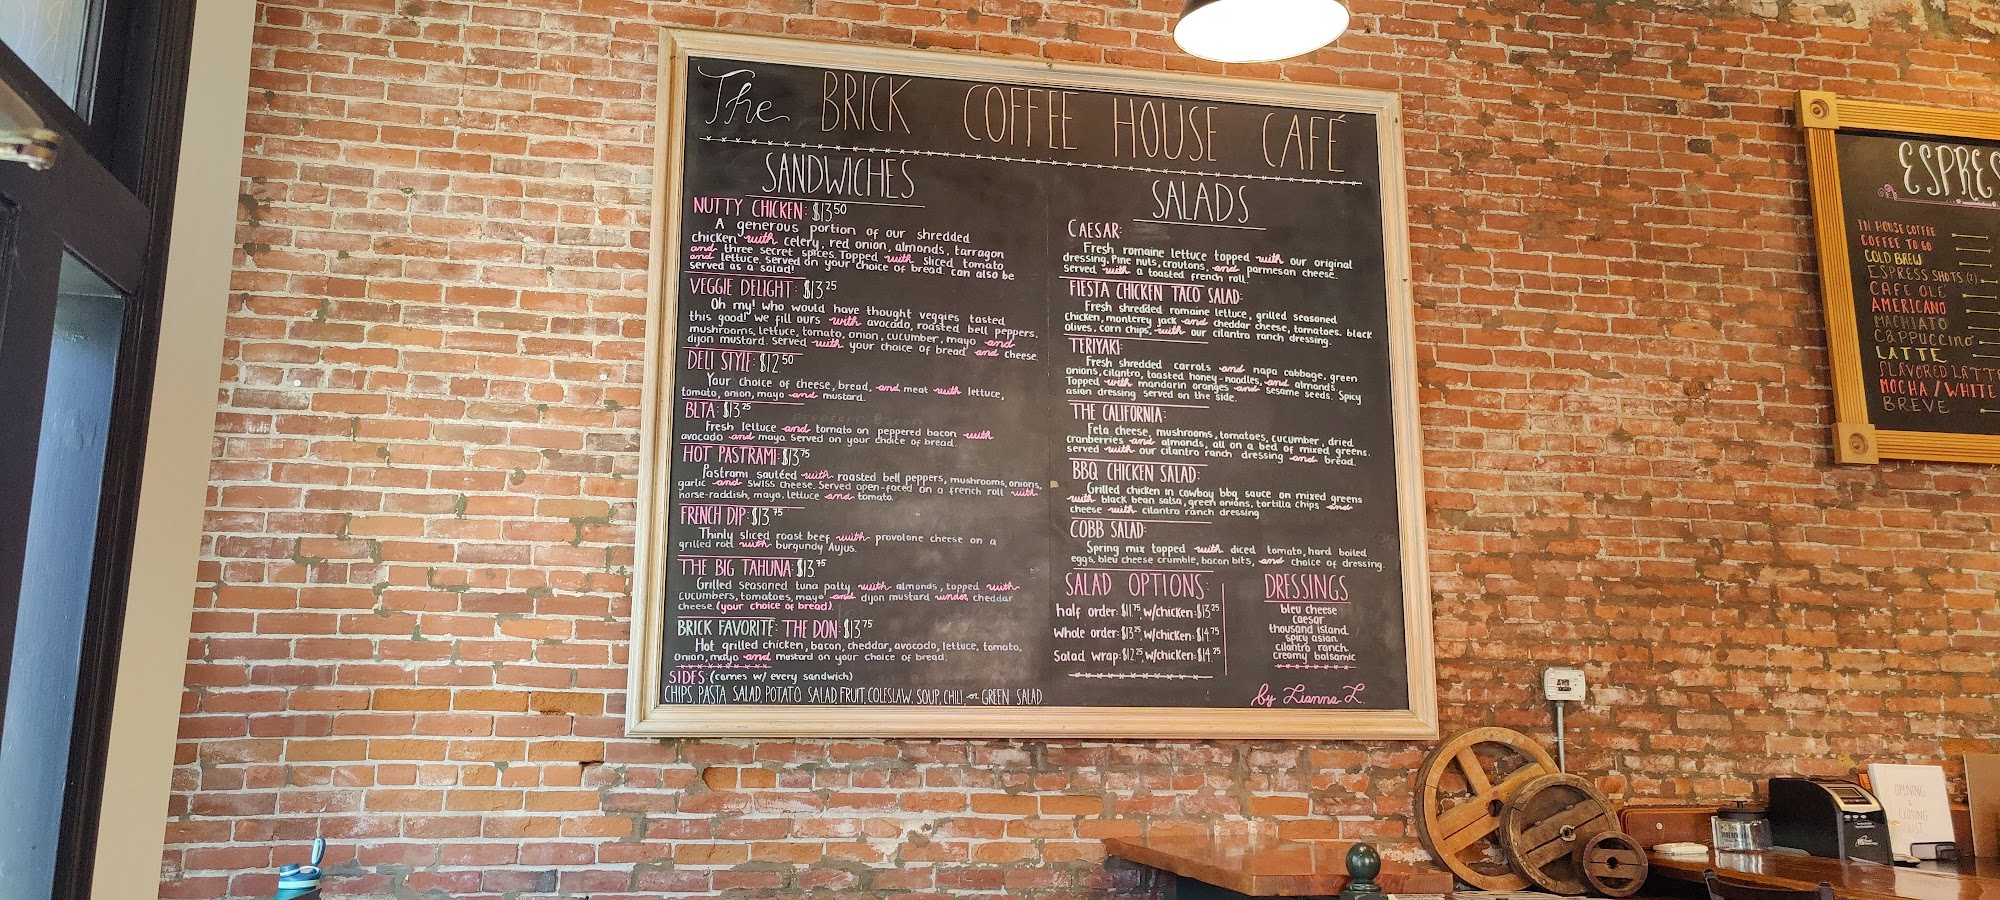 The BRICK COFFEE HOUSE CAFÉ
SANDWICHES
NUTTY CHICKEN: $13.50
A generous portion of our shredded
chicken with celery, red onion, almonds, tarragon
and three secret spices. Topped with sliced tomato
and lettuce, served on your choice of bread. can also be
served as a salad!
VEGGIE DELIGHT: $13.25
Oh my! who would have thought veggies tasted
this good! we fill ours with avocado, roasted bell peppers,
mushrooms, lettuce, tomato, onion, cucumber, mayo and
dijon mustard. served with your choice of bread and cheese.
DELI STYLE: $12.50
Your choice of cheese, bread, and meat with lettuce,
tomato, onion, mayo and mustard.
BLTA: $13.25
Fresh lettuce and tomato on peppered bacon with
avocado and mayo. served on your choice of bread.
HOT PASTRAMI: $13.75
Pastrami sautéed with roasted bell peppers, mushrooms, onions,
garlic and swiss cheese. Served open-faced on a french roll with
horse-raddish, mayo, lettuce and tomato.
FRENCH DIP: $13.75
Thinly sliced roast beef with provolone cheese on a
grilled roll with burgundy Aujus.
THE BIG TAHUNA: $13.75
Grilled seasoned tuna patty with almonds, topped with
cucumbers, tomatoes, mayo and dijon mustard under cheddar
cheese (your choice of bread).
BRICK FAVORITE: THE DON: $13.75
Hot grilled chicken, bacon, cheddar, avocado, lettuce, tomato,
onion, mayo and mustard on your choice of bread.
SIDES: (comes w/ every sandwich)
CHIPS, PASTA SALAD, POTATO SALAD, FRUIT, COLESLAW, SOUP, CHILI, or GREEN SALAD
SALADS
CAESAR:
Fresh romaine lettuce topped with our original
dressing, Pine nuts, croutons, and parmesan cheese.
served with a toasted french roll.
FIESTA CHICKEN TACO SALAD:
Fresh shredded romaine lettuce, grilled seasoned
chicken, monterey jack and cheddar cheese, tomatoes, black
olives, corn chips, with our cilantro ranch dressing.
TERIYAKI:
Fresh shredded carrots and napa cabbage, green
onions, cilantro, toasted honey-noodles, and almonds.
Topped with mandarin oranges and sesame seeds. Spicy
asian dressing served on the side.
THE CALIFORNIA:
Feta cheese, mushrooms, tomatoes, cucumber, dried
cranberries and almonds, all on a bed of mixed greens.
served with our cilantro ranch dressing and bread.
BBQ CHICKEN SALAD:
Grilled chicken in cowboy bbq sauce on mixed greens
with black bean salsa, green onions, tortilla chips and
cheese with cilantro ranch dressing
COBB SALAD:
Spring mix topped with diced tomato, hard boiled
eggs, bleu cheese crumble, bacon bits, and choice of dressing.
SALAD OPTIONS:
half order: $11.75, w/chicken: $13.25
Whole order: $13.25, w/chicken: $14.75
Salad wrap: $12.25, w/chicken: $14.25
DRESSINGS
bleu cheese
caesar
thousand island
spicy asian
cilantro ranch
creamy balsamic
by Lianna L.
ESPRES
IN HOUSE COFFEE
COFFEE TO GO
COLD BREW
ESPRESS SHOTS (2)
CAFE OLE
AMERICANO
MACHIATO
CAPPUCCINO
LATTE
FLAVORED LATTE
MOCHA/WHITE
BREVE
OPENING
&
CLOSING
LIST